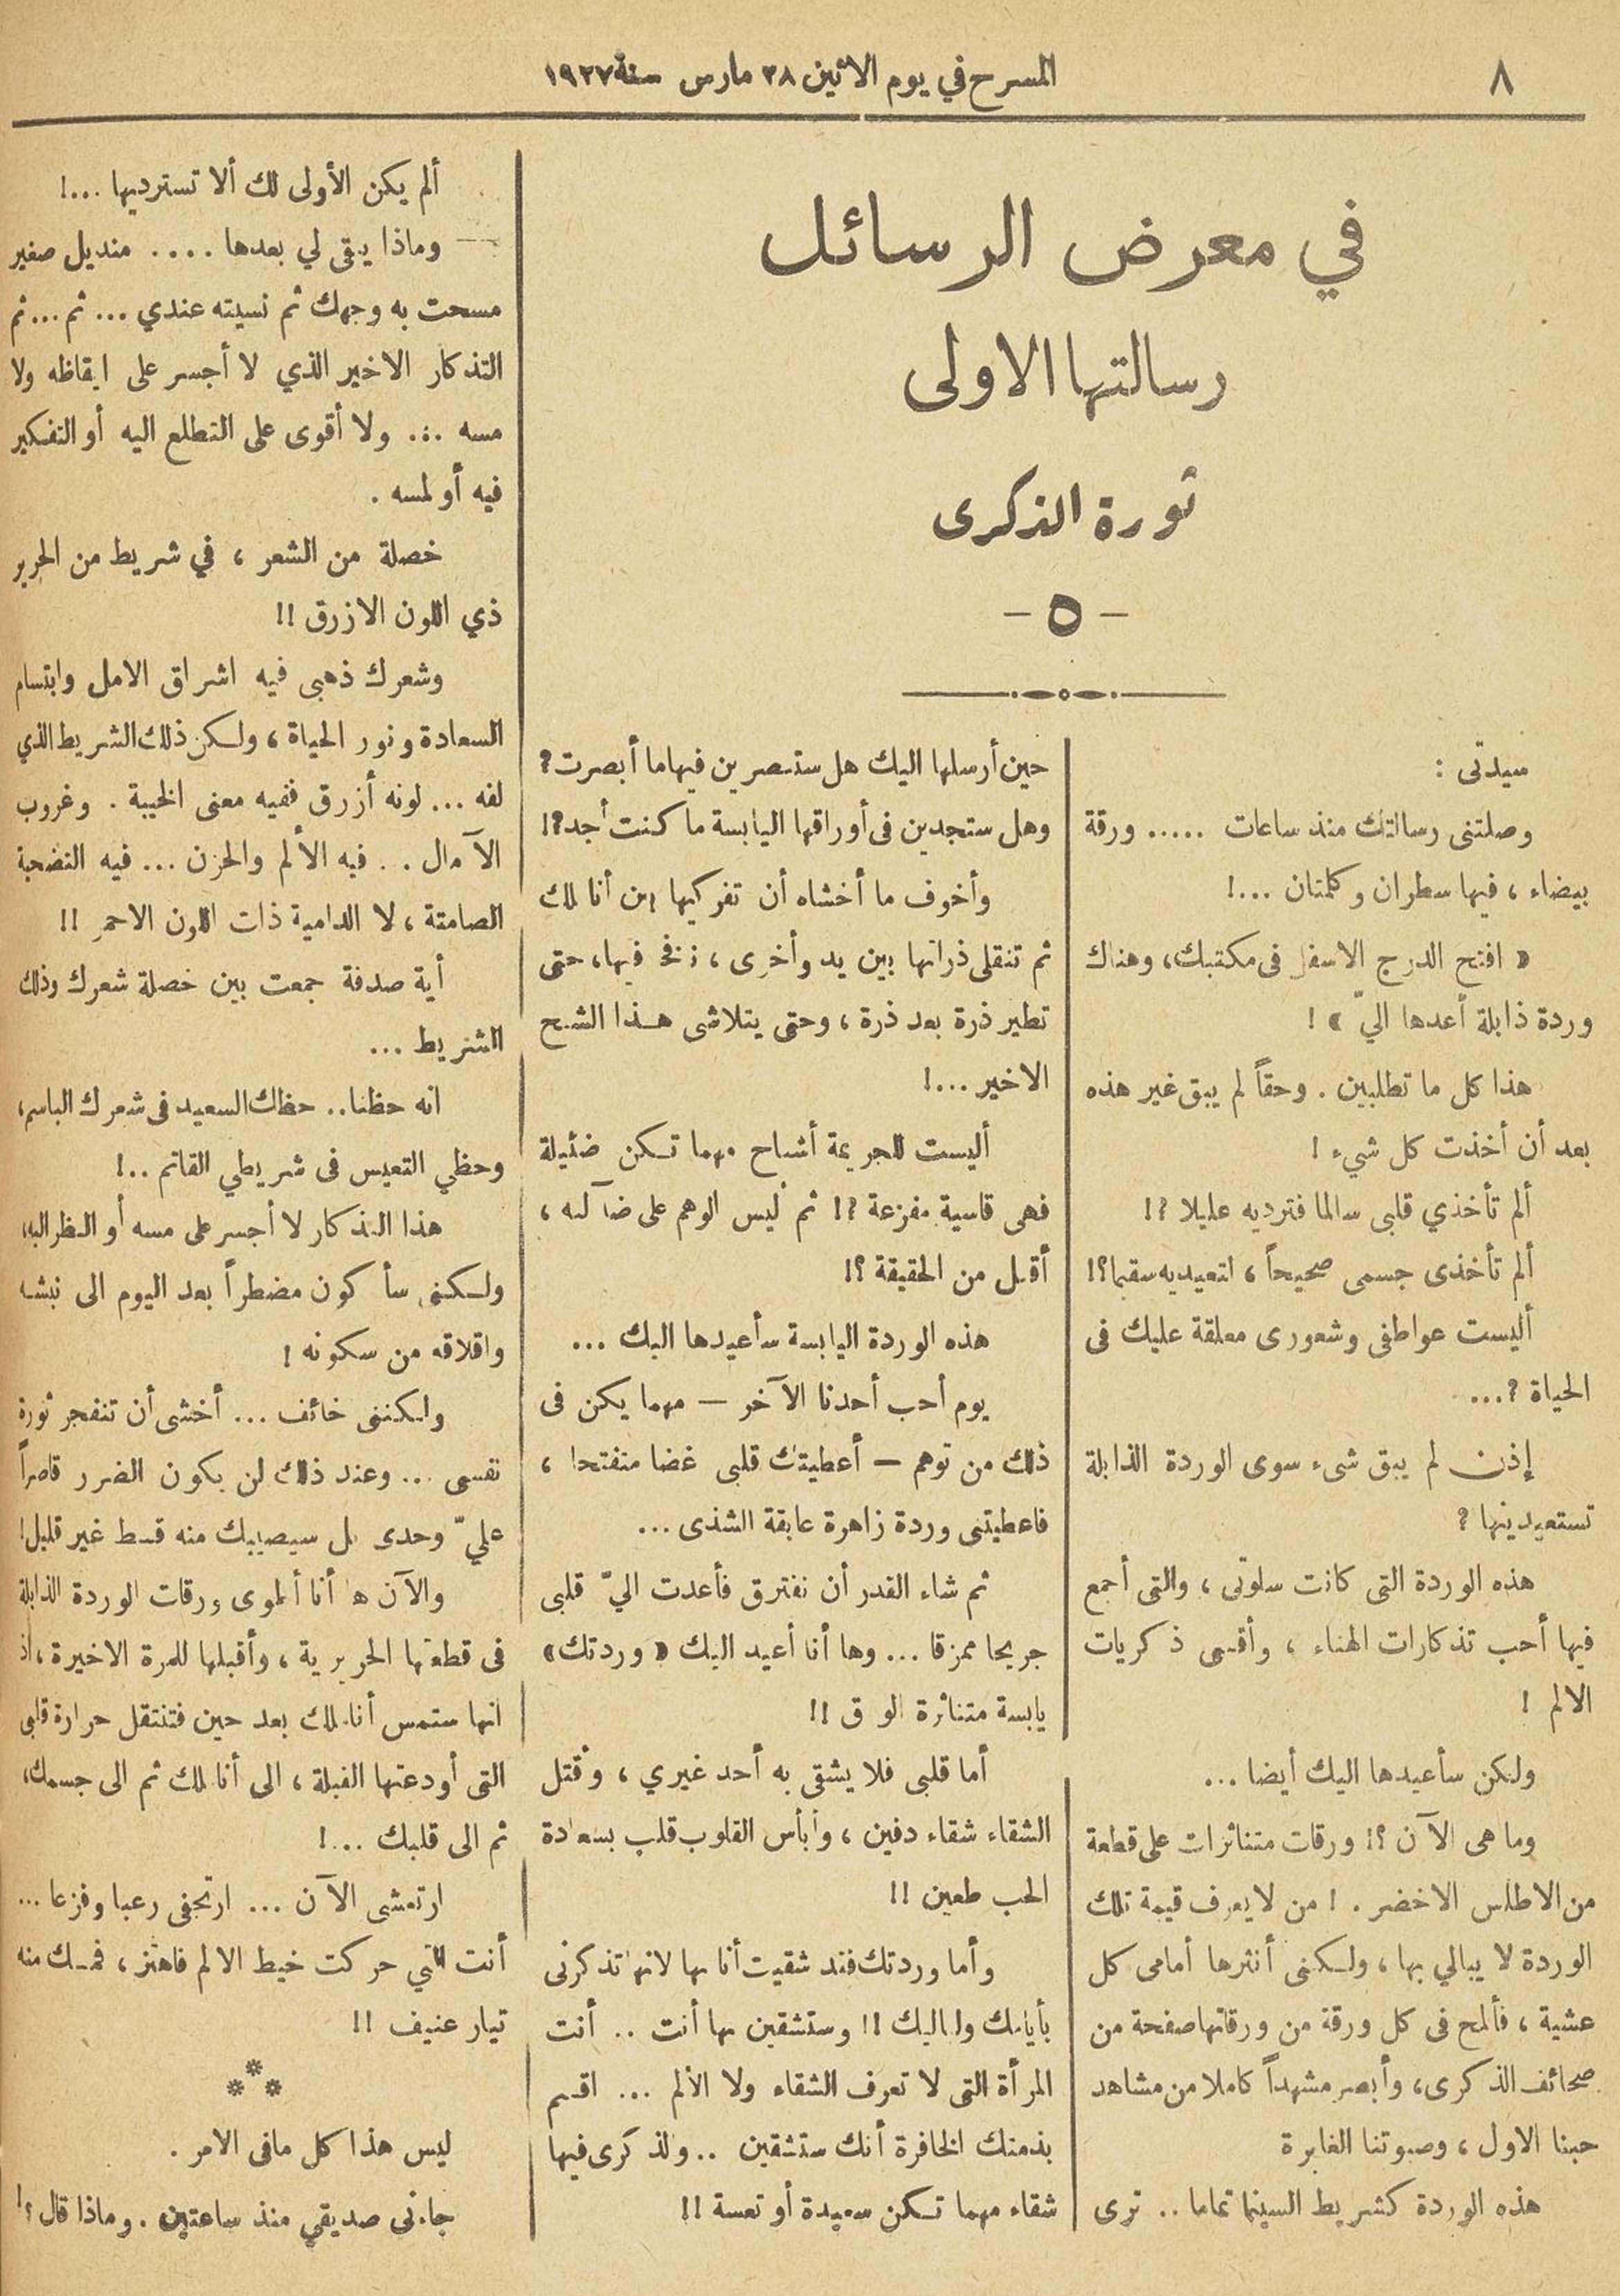 ٨
المسرح في يوم الاثنين ٢٨ مارس سنة ١٩٢٧
في معرض الرسائل
رسالتها الاولى
ثورة الذكرى
— ٥ —
سيدتى :
وصلتنى رسالتك منذ ساعات ..... ورقة
بيضاء ، فيها سطران وكلمتان ...!
« افتح الدرج الاسفل فى مكتبك، وهناك
وردة ذابلة أعدها اليّ » !
هذا كل ما تطلبين . وحقاً لم يبق غير هذه
بعد أن أخذت كل شيء !
ألم تأخذي قلبى سالما فترديه عليلا ؟!
ألم تأخذى جسمى صحيحاً ، لتعيديه سقيما؟!
أليست عواطفى وشعورى معلقة عليك فى
الحياة ؟...
إذن لم يبق شىء سوى الوردة الذابلة
تستعيدينها ؟
هذه الوردة التى كانت سلوتى ، والتى أجمع
فيها أحب تذكارات الهناء ، وأقسى ذكريات
الالم !
ولكن سأعيدها اليك أيضا ...
وما هى الآن ؟! ورقات متناثرات على قطعة
من الاطلس الاخضر . ! من لا يعرف قيمة تلك
الوردة لا يبالي بها ، ولكنى أنثرها أمامى كل
عشية ، فألمح فى كل ورقة من ورقاتها صفحة من
صحائف الذكرى، وأبصر مشهداً كاملا من مشاهد
حبنا الاول ، وصبوتنا الغابرة
هذه الوردة كشريط السينما تماما .. ترى
حين أرسلها اليك هل ستبصرين فيها ما أبصرت؟
وهل ستجدين فى أوراقها اليابسة ما كنت أجد؟!
وأخوف ما أخشاه أن تفركيها بين أناملك
ثم تنقلى ذراتها بين يد وأخرى ، فيها، حتى
تطير ذرة بعد ذرة ، وحتى يتلاشى هذا الشبح
الاخير ...!
أليست للجريمة أشباح مهما تكن ضئيلة
فهى قاسية مفزعة ؟! ثم أليس الوهم على ضآلته ،
أقبل من الحقيقة ؟!
هذه الوردة اليابسة سأعيدها اليك ...
يوم أحب أحدنا الآخر — مهما يكن فى
ذلك من توهم — أعطيتك قلبى غضا متفتحا ،
فاعطيتنى وردة زاهرة عابقة الشذى ...
ثم شاء القدر أن نفترق فأعدت اليّ قلبى
جريحا ممزقا ... وها أنا أعيد اليك « وردتك»
يابسة متناثرة الورق !!
أما قلبى فلا يشقى به أحد غيري ، وأقتل
الشقاء شقاء دفين ، وأبأس القلوب قلب بسعادة
الحب طعين !!
وأما وردتك فقد شقيت أنا بها لانها تذكرنى
بأيامك ولياليك !! وستشقين بها أنت .. أنت
المرأة التى لا تعرف الشقاء ولا الألم ... اقسم
بذمتك الخافرة أنك ستشقين .. والذكرى فيها
شقاء مهما تكن سعيدة أو تعسة !!
ألم يكن الأولى لك ألا تسترديها ...!
— وماذا يبقى لي بعدها .... منديل صغير
مسحت به وجهك ثم نسيته عندي ... ثم ... ثم
التذكار الاخير الذي لا أجسر على ايقاظه ولا
مسه ... ولا أقوى على التطلع اليه أو التفكير
فيه أو لمسه .
خصلة من الشعر ، في شريط من الحرير
ذي اللون الازرق !!
وشعرك ذهبى فيه اشراق الامل وابتسام
السعادة ونور الحياة ، ولكن ذلك الشريط الذي
لفه ... لونه أزرق ففيه معنى الخيبة . وغروب
الآمال .. فيه الألم والحزن ... فيه التضحية
الصامتة ، لا الدامية ذات اللون الاحمر !!
أية صدفة جمعت بين خصلة شعرك وذلك
الشريط ...
انه حظنا .. حظك السعيد فى شعرك الباسم،
وحظي التعيس فى شريطي القاتم ..!
هذا التذكار لا أجسر على مسه أو النظر اليه،
ولكنى سأكون مضطراً بعد اليوم الى نبشه
واقلاقه من سكونه !
ولكننى خائف ... أخشى أن تنفجر ثورة
نفسى ... وعند ذلك لن يكون الضرر قاصراً
عليّ وحدى بل سيصيبك منه قسط غير قليل!
والآن ها أنا أطوى ورقات الوردة الذابلة
فى قطعتها الحريرية ، وأقبلها للمرة الاخيرة ، اذ
انها ستمس أناملك بعد حين فتنتقل حرارة قلبى
التى أودعتها القبلة ، الى أناملك ثم الى جسمك،
ثم الى قلبك ...!
ارتعشى الآن ... ارتجفى رعبا وفزعا ...
أنت التي حركت خيط الالم فاهتز ، فمسك منه
تيار عنيف !!
***
ليس هذا كل مافى الامر .
جاءنى صديقي منذ ساعتين . وماذا قال ؟!